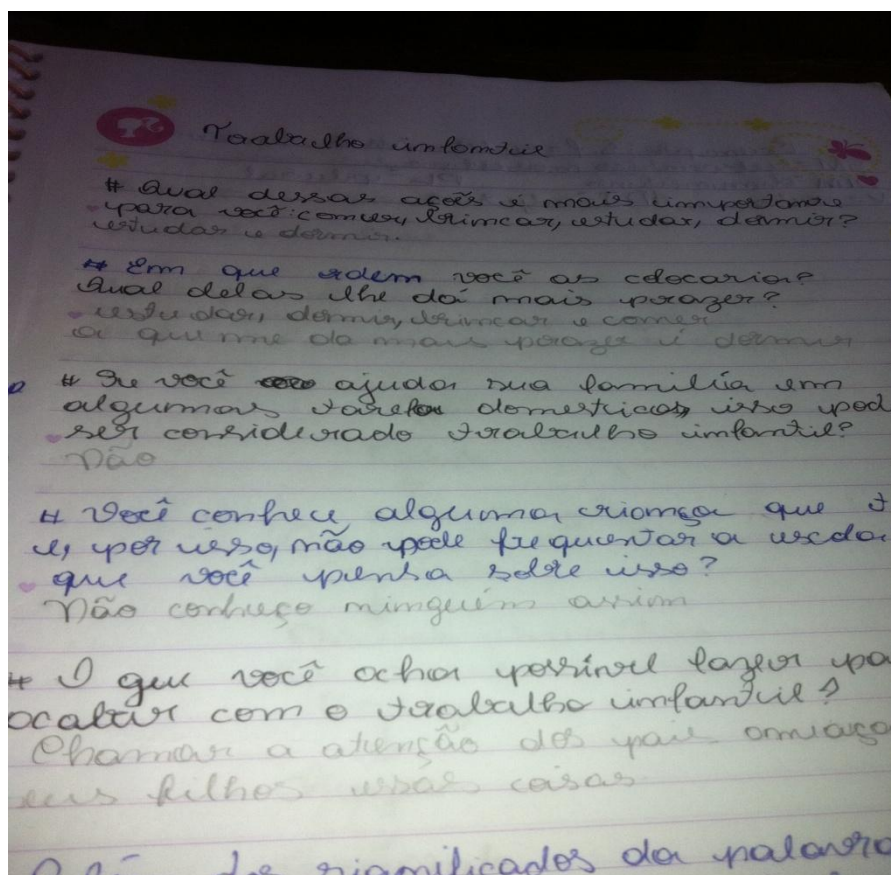 Trabalho infantil
# Qual dessas ações é mais importante
para você: comer, brincar, estudar, dormir?
estudar e dormir.
# Em que ordem você as colocaria?
Qual delas lhe dá mais prazer?
estudar, dormir, brincar e comer
a que me da mais prazer é dormir
# Se você ajudar sua família em
algumas tarefas domesticas, isso pod
ser considerado trabalho infantil?
Não
# Você conhece alguma criança que t
e, por isso, não pode frequentar a escola
que você pensa sobre isso?
Não conheço ninguém assim
# O que você acha possível fazer pa
acabar com o trabalho infantil?
Chamar a atenção dos pais
seus filhos essas coisas
significados da palavra